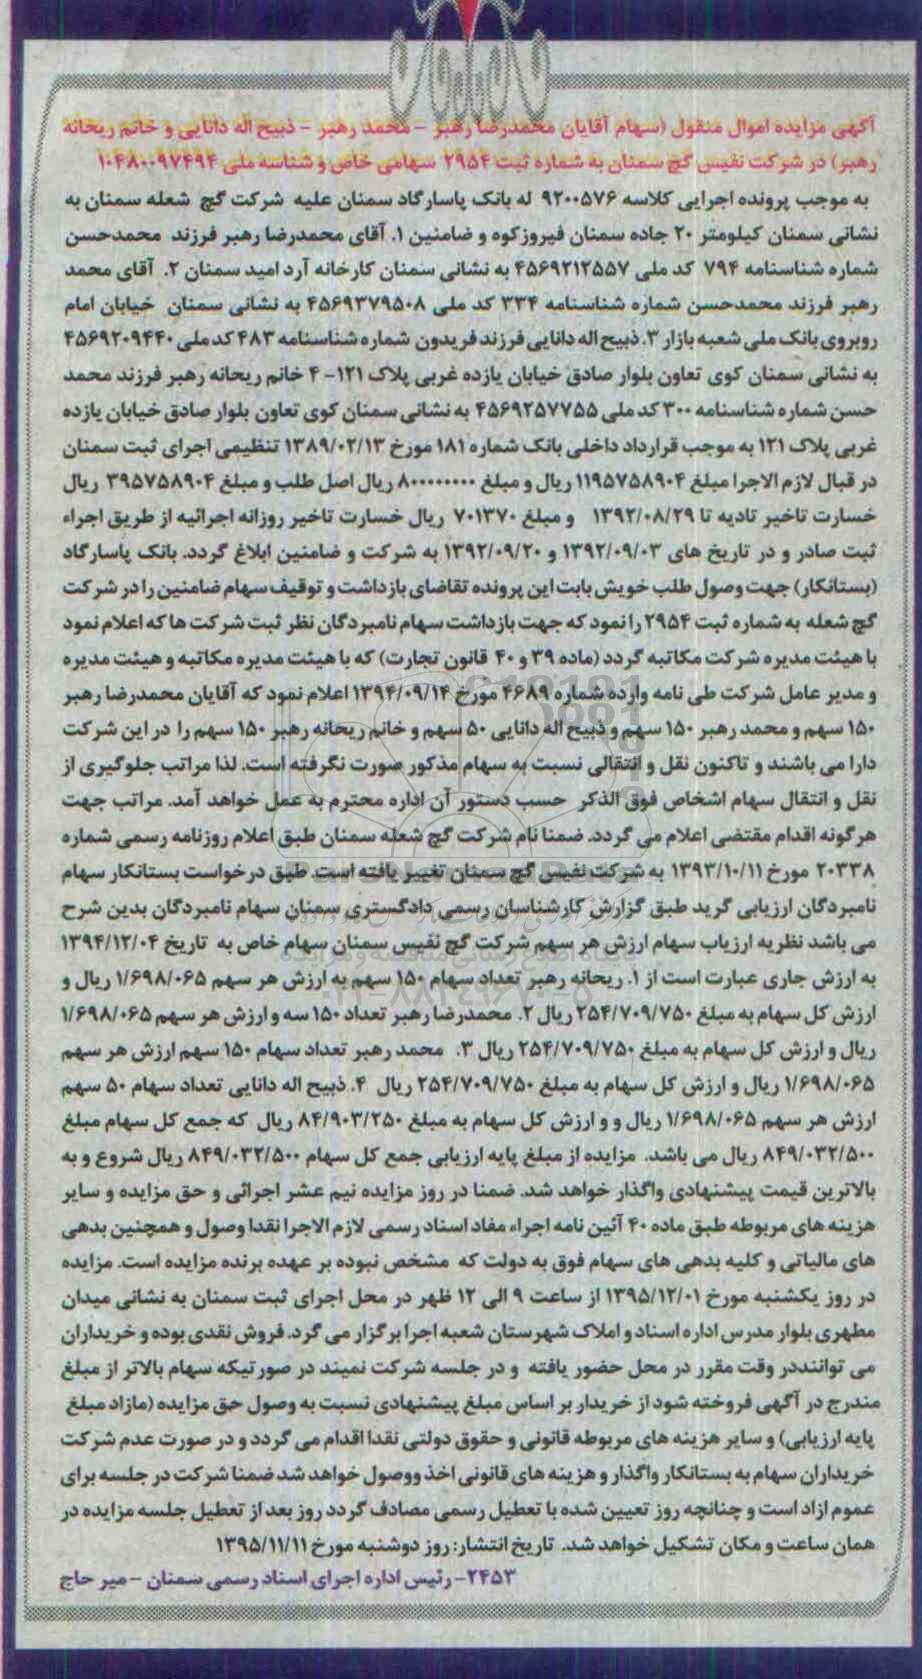 آگهی مزایده اموال منقول (سهام آقایان محمدرضا رهبر - محمد رهبر - ذبیح اله دانایی و خانم ریحانه
رهبر) در شرکت نفیس گچ سمنان به شماره ثبت ۲۹۵۴ سهامی خاص و شناسه ملی ۱۰۴۸۰۰۹۷۴۹۴
به موجب پرونده اجرایی کلاسه ۹۲۰۰۵۷۶ له بانک پاسارگاد سمنان علیه شرکت گچ شعله سمنان به
نشانی سمنان کیلومتر ۲۰ جاده سمنان فیروزکوه و ضامنین ۱. آقای محمدرضا رهبر فرزند محمدحسن
شماره شناسنامه ۷۹۴ کد ملی ۴۵۶۹۲۱۲۵۵۷ به نشانی سمنان کارخانه آرد امید سمنان ۲. آقای محمد
رهبر فرزند محمدحسن شماره شناسنامه ۳۳۴ کد ملی ۴۵۶۹۳۷۹۵۰۸ به نشانی سمنان خیابان امام
روبروی بانک ملی شعبه بازار ۳. ذبیح اله دانایی فرزند فریدون شماره شناسنامه ۴۸۳ کد ملی ۴۵۶۹۲۰۹۴۴۰
به نشانی سمنان کوی تعاون بلوار صادق خیابان یازده غربی پلاک ۱۲۱- ۴ خانم ریحانه رهبر فرزند محمد
حسن شماره شناسنامه ۳۰۰ کد ملی ۴۵۶۹۲۵۷۷۵۵ به نشانی سمنان کوی تعاون بلوار صادق خیابان یازده
غربی پلاک ۱۲۱ به موجب قرارداد داخلی بانک شماره ۱۸۱ مورخ ۱۳۸۹/۰۲/۱۳ تنظیمی اجرای ثبت سمنان
در قبال لازم الاجرا مبلغ ۱۱۹۵۷۵۸۹۰۴ ریال و مبلغ ۸۰۰۰۰۰۰۰۰ ریال اصل طلب و مبلغ ۳۹۵۷۵۸۹۰۴ ریال
خسارت تاخیر تادیه تا ۱۳۹۲/۰۸/۲۹ و مبلغ ۷۰۱۳۷۰ ریال خسارت تاخیر روزانه اجرائیه از طریق اجراء
ثبت صادر و در تاریخ های ۱۳۹۲/۰۹/۰۳ و ۱۳۹۲/۰۹/۲۰ به شرکت و ضامنین ابلاغ گردد. بانک پاسارگاد
(بستانکار) جهت وصول طلب خویش بابت این پرونده تقاضای بازداشت و توقیف سهام ضامنین را در شرکت
گچ شعله به شماره ثبت ۲۹۵۴ را نمود که جهت بازداشت سهام نامبردگان نظر ثبت شرکت ها که اعلام نمود
با هیئت مدیره شرکت مکاتبه گردد (ماده ۳۹ و ۴۰ قانون تجارت) که با هیئت مدیره مکاتبه و هیئت مدیره
و مدیر عامل شرکت طی نامه وارده شماره ۴۶۸۹ مورخ ۱۳۹۴/۰۹/۱۴ اعلام نمود که آقایان محمدرضا رهبر
۱۵۰ سهم و محمد رهبر ۱۵۰ سهم و ذبیح اله دانایی ۵۰ سهم و خانم ریحانه رهبر ۱۵۰ سهم را در این شرکت
دارا می باشند و تاکنون نقل و انتقالی نسبت به سهام مذکور صورت نگرفته است. لذا مراتب جلوگیری از
نقل و انتقال سهام اشخاص فوق الذکر حسب دستور آن اداره محترم به عمل خواهد آمد. مراتب جهت
هرگونه اقدام مقتضی اعلام می گردد. ضمنا نام شرکت گچ شعله سمنان طبق اعلام روزنامه رسمی شماره
۲۰۳۳۸ مورخ ۱۳۹۳/۱۰/۱۱ به شرکت نفیس گچ سمنان تغییر یافته است. طبق درخواست بستانکار سهام
نامبردگان ارزیابی گرید طبق گزارش کارشناسان رسمی دادگستری سمنان سهام نامبردگان بدین شرح
می باشد نظریه ارزیاب سهام ارزش هر سهم شرکت گچ نفیس سمنان سهام خاص به تاریخ ۱۳۹۴/۱۲/۰۴
به ارزش جاری عبارت است از ۱. ریحانه رهبر تعداد سهام ۱۵۰ سهم به ارزش هر سهم ۱/۶۹۸/۰۶۵ ریال و
ارزش کل سهام به مبلغ ۲۵۴/۷۰۹/۷۵۰ ریال ۲. محمدرضا رهبر تعداد ۱۵۰ سه و ارزش هر سهم ۱/۶۹۸/۰۶۵
ریال و ارزش کل سهام به مبلغ ۲۵۴/۷۰۹/۷۵۰ ریال ۳. محمد رهبر تعداد سهام ۱۵۰ سهم ارزش هر سهم
۱/۶۹۸/۰۶۵ ریال و ارزش کل سهام به مبلغ ۲۵۴/۷۰۹/۷۵۰ ریال ۴. ذبیح اله دانایی تعداد سهام ۵۰ سهم
ارزش هر سهم ۱/۶۹۸/۰۶۵ ریال و و ارزش کل سهام به مبلغ ۸۴/۹۰۳/۲۵۰ ریال که جمع کل سهام مبلغ
۸۴۹/۰۳۲/۵۰۰ ریال می باشد. مزایده از مبلغ پایه ارزیابی جمع کل سهام ۸۴۹/۰۳۲/۵۰۰ ریال شروع و به
بالاترین قیمت پیشنهادی واگذار خواهد شد. ضمنا در روز مزایده نیم عشر اجرائی و حق مزایده و سایر
هزینه های مربوطه طبق ماده ۴۰ آئین نامه اجراء مفاد اسناد رسمی لازم الاجرا نقدا وصول و همچنین بدهی
های مالیاتی و کلیه بدهی های سهام فوق به دولت که مشخص نبوده بر عهده برنده مزایده است. مزایده
در روز یکشنبه مورخ ۱۳۹۵/۱۲/۰۱ از ساعت ۹ الی ۱۲ ظهر در محل اجرای ثبت سمنان به نشانی میدان
مطهری بلوار مدرس اداره اسناد و املاک شهرستان شعبه اجرا برگزار می گرد. فروش نقدی بوده و خریداران
می تواننددر وقت مقرر در محل حضور یافته و در جلسه شرکت نمیند در صورتیکه سهام بالاتر از مبلغ
مندرج در آگهی فروخته شود از خریدار بر اساس مبلغ پیشنهادی نسبت به وصول حق مزایده (مازاد مبلغ
پایه ارزیابی) و سایر هزینه های مربوطه قانونی و حقوق دولتی نقدا اقدام می گردد و در صورت عدم شرکت
خریداران سهام به بستانکار واگذار و هزینه های قانونی اخذ ووصول خواهد شد ضمنا شرکت در جلسه برای
عموم ازاد است و چنانچه روز تعیین شده با تعطیل رسمی مصادف گردد روز بعد از تعطیل جلسه مزایده در
همان ساعت و مکان تشکیل خواهد شد. تاریخ انتشار: روز دوشنبه مورخ ۱۳۹۵/۱۱/۱۱
۲۴۵۳- رئیس اداره اجرای اسناد رسمی سمنان - میر حاج